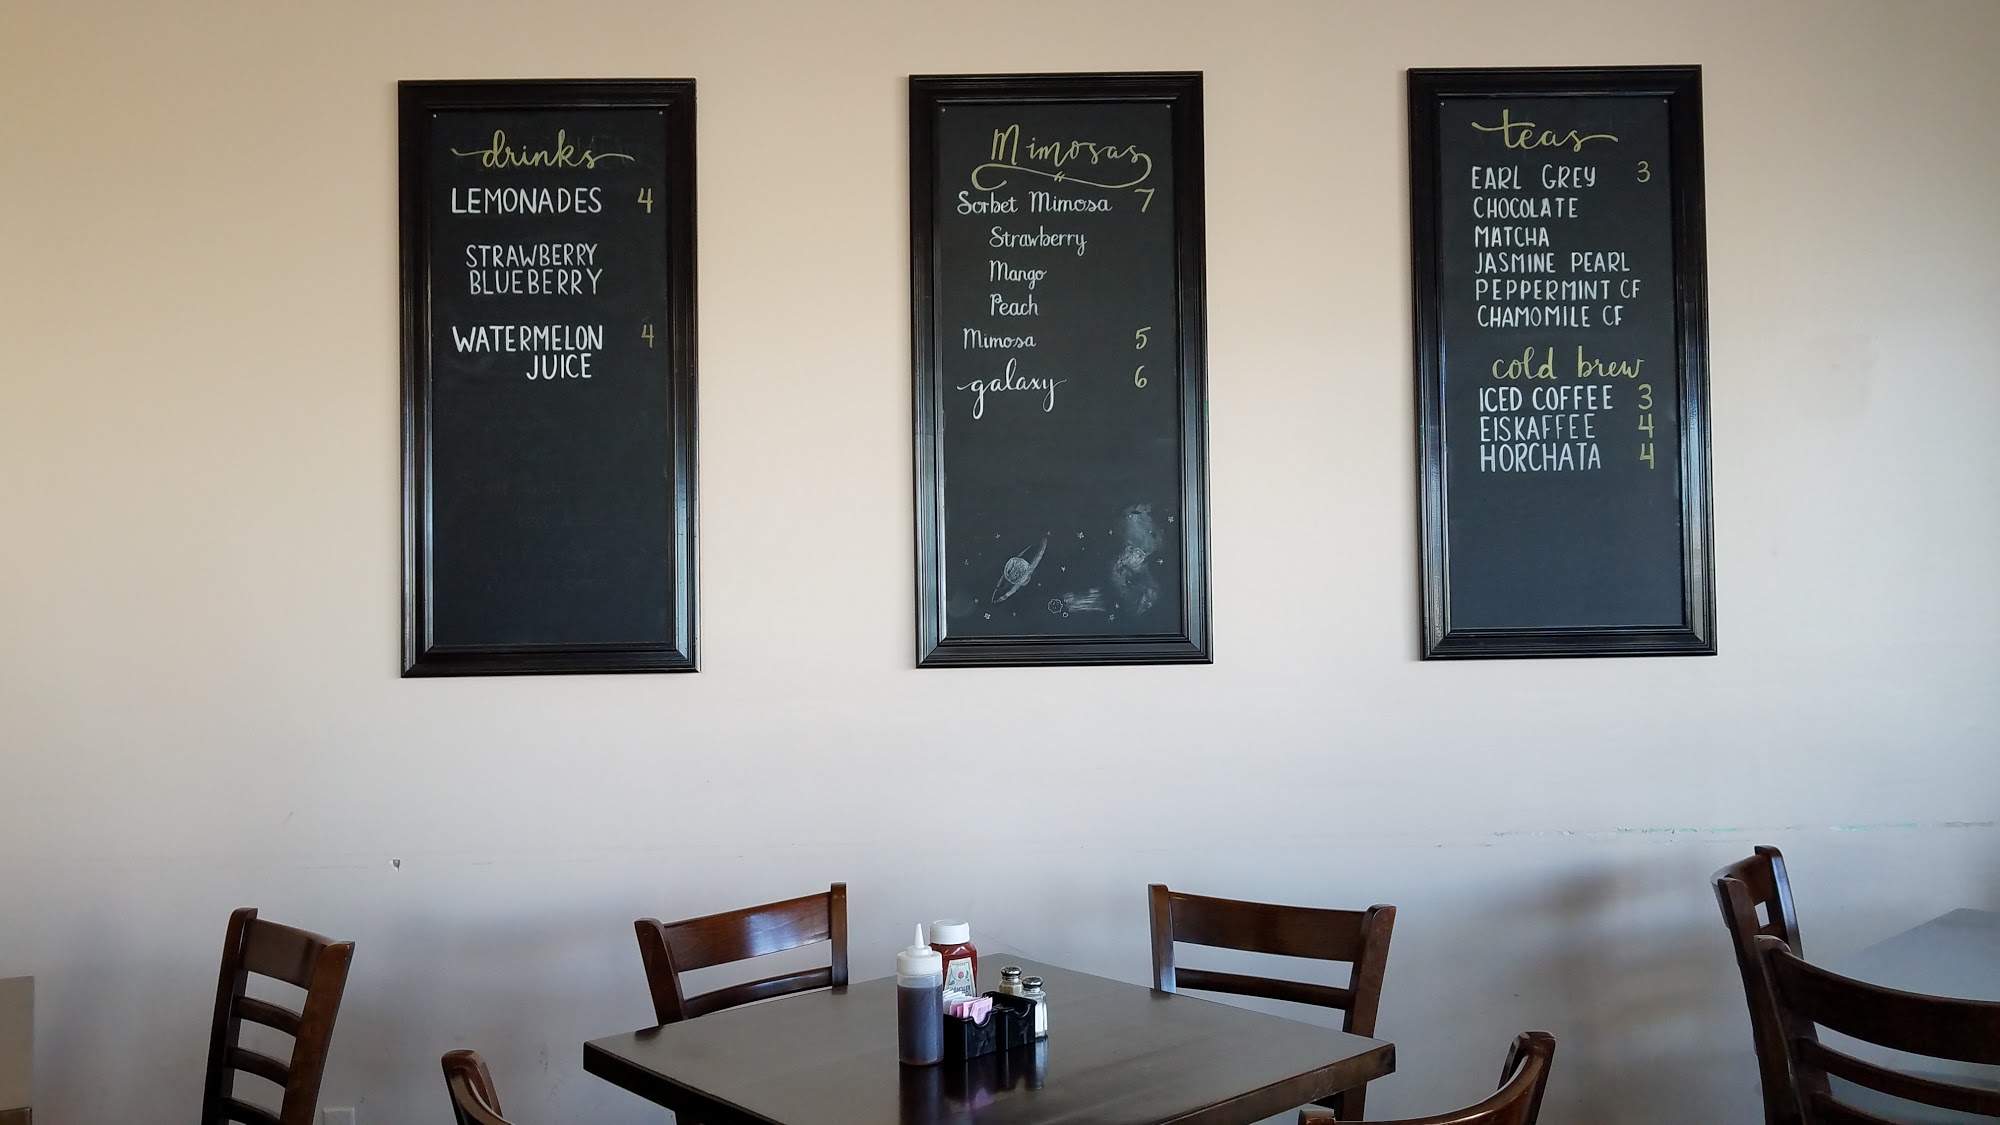 drinks
LEMONADES 4
STRAWBERRY
BLUEBERRY
WATERMELON 4
JUICE
Mimosas
Sorbet Mimosa 7
Strawberry
Mango
Peach
Mimosa 5
galaxy 6
teas
EARL GREY 3
CHOCOLATE
MATCHA
JASMINE PEARL
PEPPERMINT CF
CHAMOMILE CF
cold brew
ICED COFFEE 3
EISKAFFEE 4
HORCHATA 4